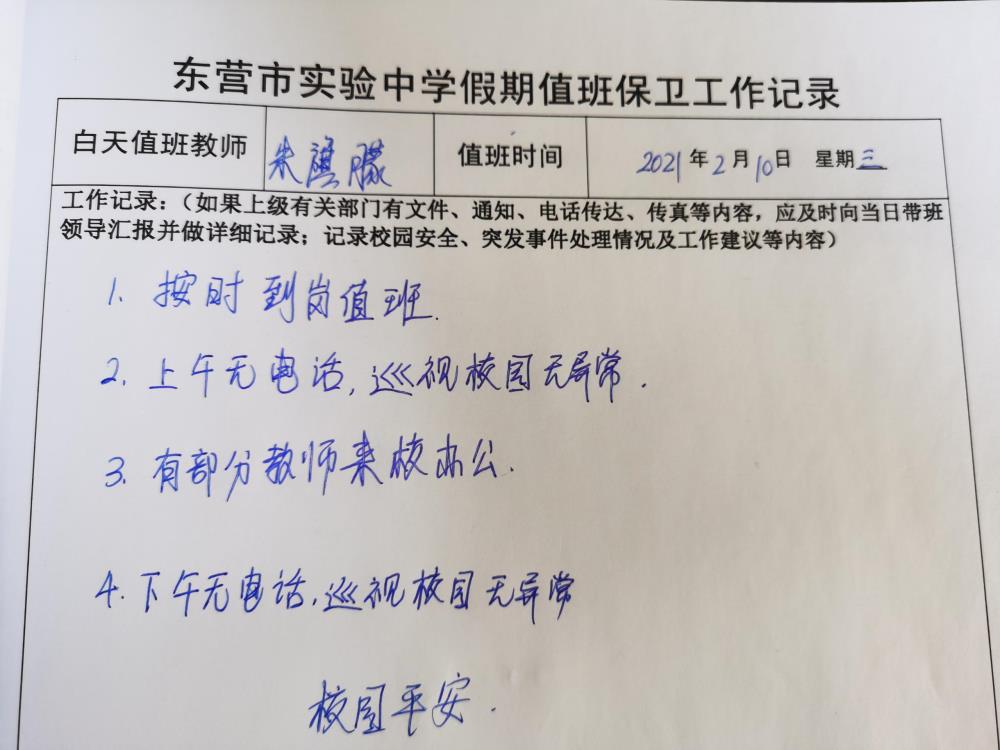 东营市实验中学假期值班保卫工作记录
白天值班教师 朱 值班时间 2021年2月10日 星期三
工作记录：（如果上级有关部门有文件、通知、电话传达、传真等内容，应及时向当日带班
领导汇报并做详细记录；记录校园安全、突发事件处理情况及工作建议等内容）
1. 按时到岗值班.
2. 上午无电话,巡视校园无异常.
3. 有部分教师来校办公.
4. 下午无电话,巡视校园无异常
校园平安.